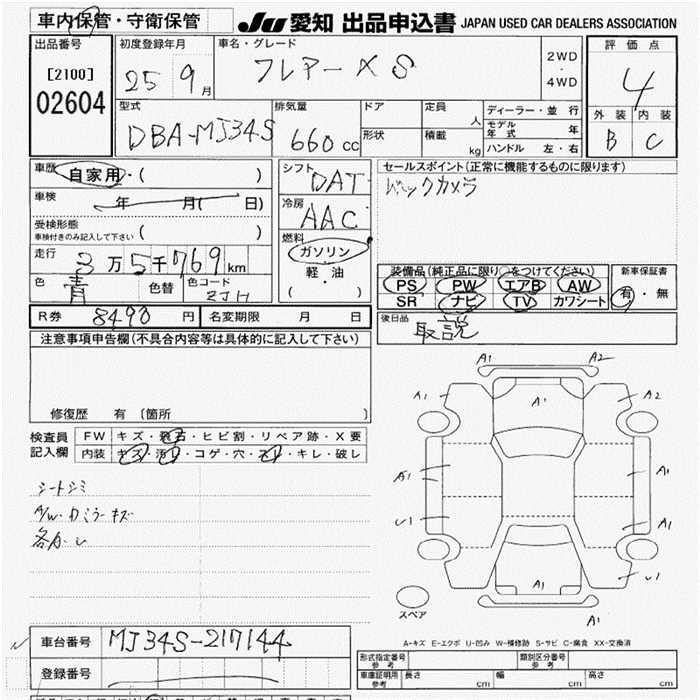 車内保管・守衛保管
JU 愛知 出品申込書 JAPAN USED CAR DEALERS ASSOCIATION
出品番号
[2100]
02604
初度登録年月
25 9月
車名・グレード
フレアー XS
2WD
・
4WD
評価点
4
外装 内装
B C
型式
DBA-MJ34S
排気量
660 cc
ドア
形状
定員 人
積載 kg
ディーラー・並行
モデル年式 年
ハンドル 左・右
車歴 自家用・( )
車検 年 月( 日)
受検形態
車検付きのみ記入して下さい ( )
走行 3万5千769km
色 青 色替 色コード ZJH
シフト DAT
冷房 AAC
燃料
ガソリン
・
軽・油
( )
セールスポイント(正常に機能するものに限ります)
バックカメラ
装備品(純正品に限り○をつけてください)
PS PW エアB AW
SR ナビ TV カワシート
新車保証書
有・無
R券 8490円 名変期限 月 日
後日品 取説
注意事項申告欄(不具合内容等は具体的に記入して下さい)
修復歴 有 〔箇所 〕
検査員記入欄
FW キズ・飛石・ヒビ割・リペア跡・X要
内装 キズ・汚れ・コゲ・穴・スレ・キレ・破レ
シートシミ
A/W・ドミラーキズ
各A・U
A1 A2
A1 A1 A2
A1 A1
U1 A1
A1 U1
A1
スペア
A-キズ E-エクボ U-凹み W-補修跡 S-サビ C-腐食 XX-交換済
車台番号 MJ34S-217144
登録番号
形式指定番号参考 類別区分番号参考
車庫証明用参考 長さ cm 幅 cm 高さ cm